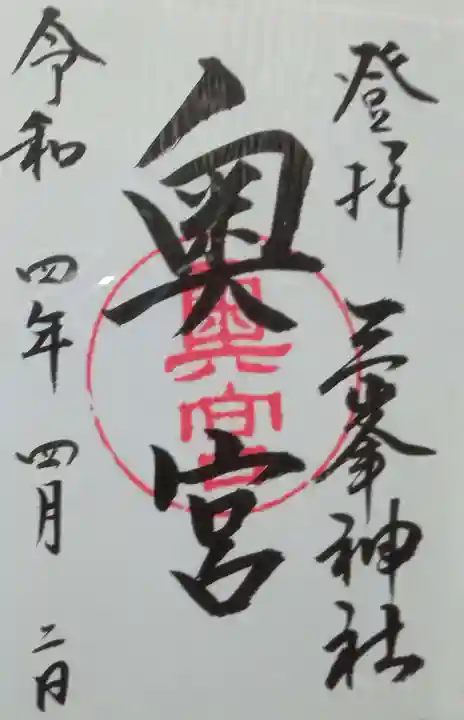 登拝 三峯神社
奥宮
奥宮
令和 四年 四月 二日